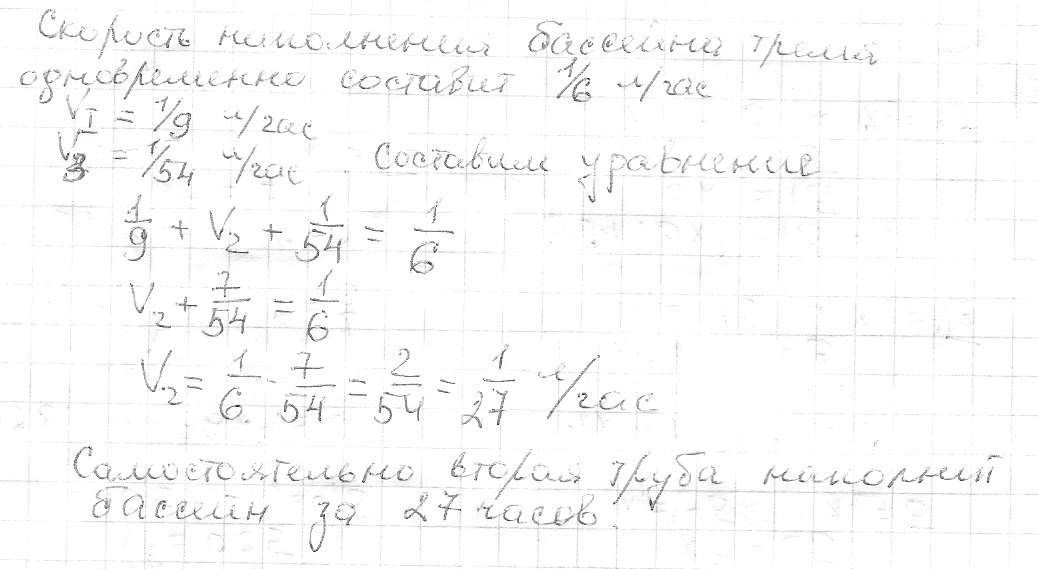 Скорость наполнения бассейна тремя
одновременно составит 1/6 л/час
V₁ = 1/9 л/час
V₃ = 1/54 л/час Составим уравнение
1/9 + V₂ + 1/54 = 1/6
V₂ + 7/54 = 1/6
V₂ = 1/6 - 7/54 = 2/54 = 1/27 л/час
Самостоятельно вторая труба наполнит
бассейн за 27 часов.